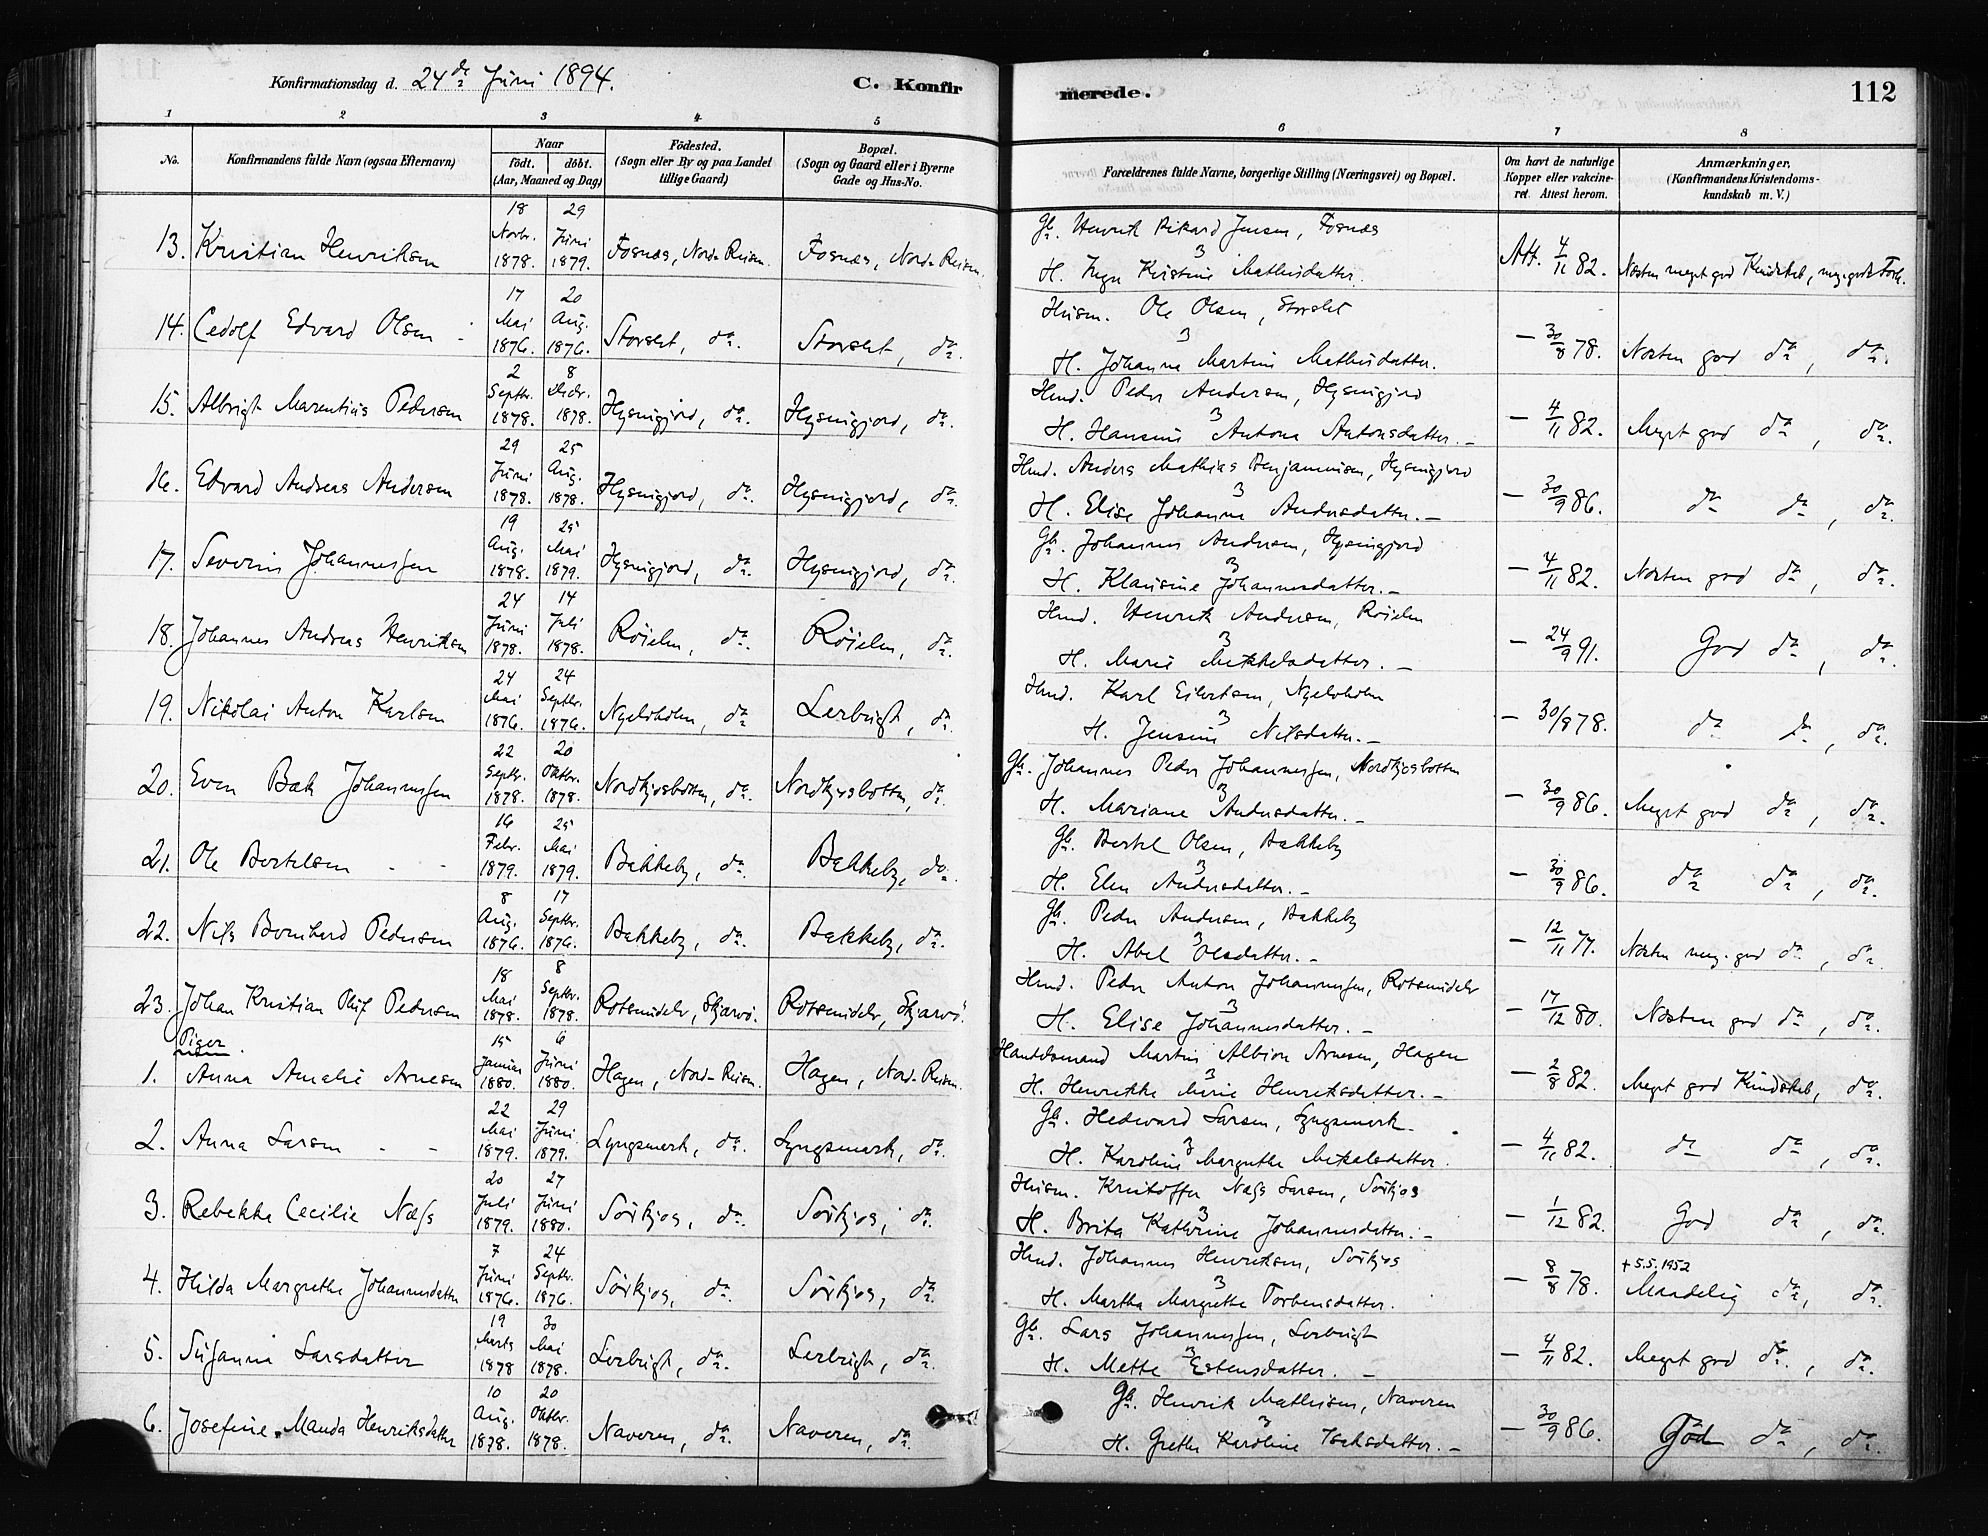 Konfirmationsdag d. 24de Juni 1894. C. Konfirmerede. 112
1 2 3 4 5 6 7 8
No. Konfirmandens fulde Navn (ogsaa Efternavn) Naar født. døbt. (Aar, Maaned og Dag) Födested. (Sogn eller By og paa Landet tillige Gaard) Bopæl. (Sogn og Gaard eller i Byerne Gade og Hus-No. Forældrenes fulde Navne, borgerlige Stilling (Næringsvei) og Bopæl. Om havt de naturlige Kopper eller vakcineret. Attest herom. Anmærkninger. (Konfirmandens Kristendomskundskab m. V.)
13. Kristian Henriksen 18 Novbr. 1878. 29 Juni 1879. Fosnæs, Nord-Reisen. Fosnæs, Nord-Reisen. Gb. Henrik Rikard Jensen, Fosnæs
H. Inger Kristine Mathisdatter. Att. 4/11 82. Næsten meget god Kundskab, meg. gode Forh.
14. Cedolf Edvard Olsen 17 Mai 1876. 20 Aug. 1876. Storslet, do. Storslet, do. Husm. Ole Olsen, Storslet
H. Johanna Martine Mathisdatter. — 30/8 78. Næsten god do, do.
15. Albrigt Marentius Pedersen 2 Septbr. 1878. 8 Decbr. 1878. Hysingjord, do. Hysingjord, do. Hmd. Peder Andersen, Hysingjord
H. Hansine Antona Antonsdatter. — 4/11 82. Meget god do, do.
16. Edvard Andreas Andersen 29 Juni 1878. 25 Aug. 1878. Hysingjord, do. Hysingjord, do. Hmd. Anders Mathias Benjaminsen, Hysingjord
H. Elise Johanna Andersdatter. — 30/9 86. do do, do.
17. Severin Johannessen 19 Aug. 1878. 25 Mai 1879. Hysingjord, do. Hysingjord, do. Gb. Johannes Andersen, Hysingjord
H. Klausine Johannesdatter. — 4/11 82. Næsten god do, do.
18. Johannes Andreas Henriksen 24 Juni 1878. 14 Juli 1878. Röielen, do. Röielen, do. Hmd. Henrik Andersen, Röielen
H. Marie Mikkelsdatter. — 24/9 91. God do, do.
19. Nikolai Anton Karlsen 24 Mai 1876. 24 Septbr. 1876. Nyelvholm, do Lerbugt, do Hmd. Karl Eilertsen, Nyelvholm
H. Jensine Nilsdatter. — 30/8 78. do do, do.
20. Even Bak Johannessen 22 Septbr. 1878. 20 Oktbr. 1878. Nordkjosbotten, do. Nordkjosbotten, do. Gb. Johannes Peder Johannessen, Nordkjosbotten
H. Mariane Andersdatter. — 30/9 86. Meget god do, do.
21. Ole Bertelsen 16 Febr. 1879. 25 Mai 1879. Bakkeby, do. Bakkeby, do. Gb. Bertel Olsen, Bakkeby
H. Elen Andersdatter. — 30/9 86. do do, do.
22. Nils Bernhard Pedersen 8 Aug. 1876. 17 Septbr. 1876. Bakkeby, do. Bakkeby, do. Gb. Peder Andersen, Bakkeby
H. Abel Olsdatter. — 12/11 77. Næsten meg. god do, do.
23. Johan Kristian Oluf Pedersen 18 Mai 1878. 8 Septbr. 1878. Rotsundelv, Skjærvö. Rotsundelv, Skjærvö. Hmd. Peder Anton Johannessen, Rotsundelv
H. Elise Johannesdatter. — 17/12 80. Næsten god do, do.
Piger.
1. Anna Amalie Arnesen 15 Januar 1880. 6 Juni 1880. Hagen, Nord-Reisen. Hagen, Nord-Reisen. Handelsmand Martin Albion Arnesen, Hagen
H. Henrikke Marie Henriksdatter. — 2/8 82. Meget god Kundskab, do.
2. Anna Larsen 22 Mai 1879. 29 Juni 1879. Lyngsmark, do. Lyngsmark, do. Gb. Hedevard Larsen, Lyngsmark.
H. Karoline Margrethe Mikkelsdatter. — 4/11 82. do do, do.
3. Rebekka Cecilie Næss 20 Juli 1879. 27 Juni 1880. Sörkjos, do. Sörkjos, do. Husm. Kristoffer Næss Larsen, Sörkjos
H. Brita Kathrine Johannesdatter. — 1/12 82. God do, do.
4. Hilda Margrethe Johannesdatter 7 Juni 1876. 24 Septbr. 1876. Sörkjos, do. Sörkjos, do. Hmd. Johannes Henriksen, Sörkjos
H. Martha Margrethe Torbensdatter. — 8/8 78. + 5.5.1952 Maadelig do, do.
5. Susanna Larsdatter 19 Marts 1878 30 Mai 1878. Lerbugt, do. Lerbugt, do. Gb. Lars Johannessen, Lerbugt
H. Mette Estensdatter. — 4/11 82. Meget god do, do.
6. Josefine Manda Henriksdatter 10 Aug. 1878. 20 Oktbr. 1878. Naveren, do. Naveren, do. Gb. Henrik Mathisen, Naveren
H. Grethe Karoline Isaksdatter. — 30/9 86. God do, do.